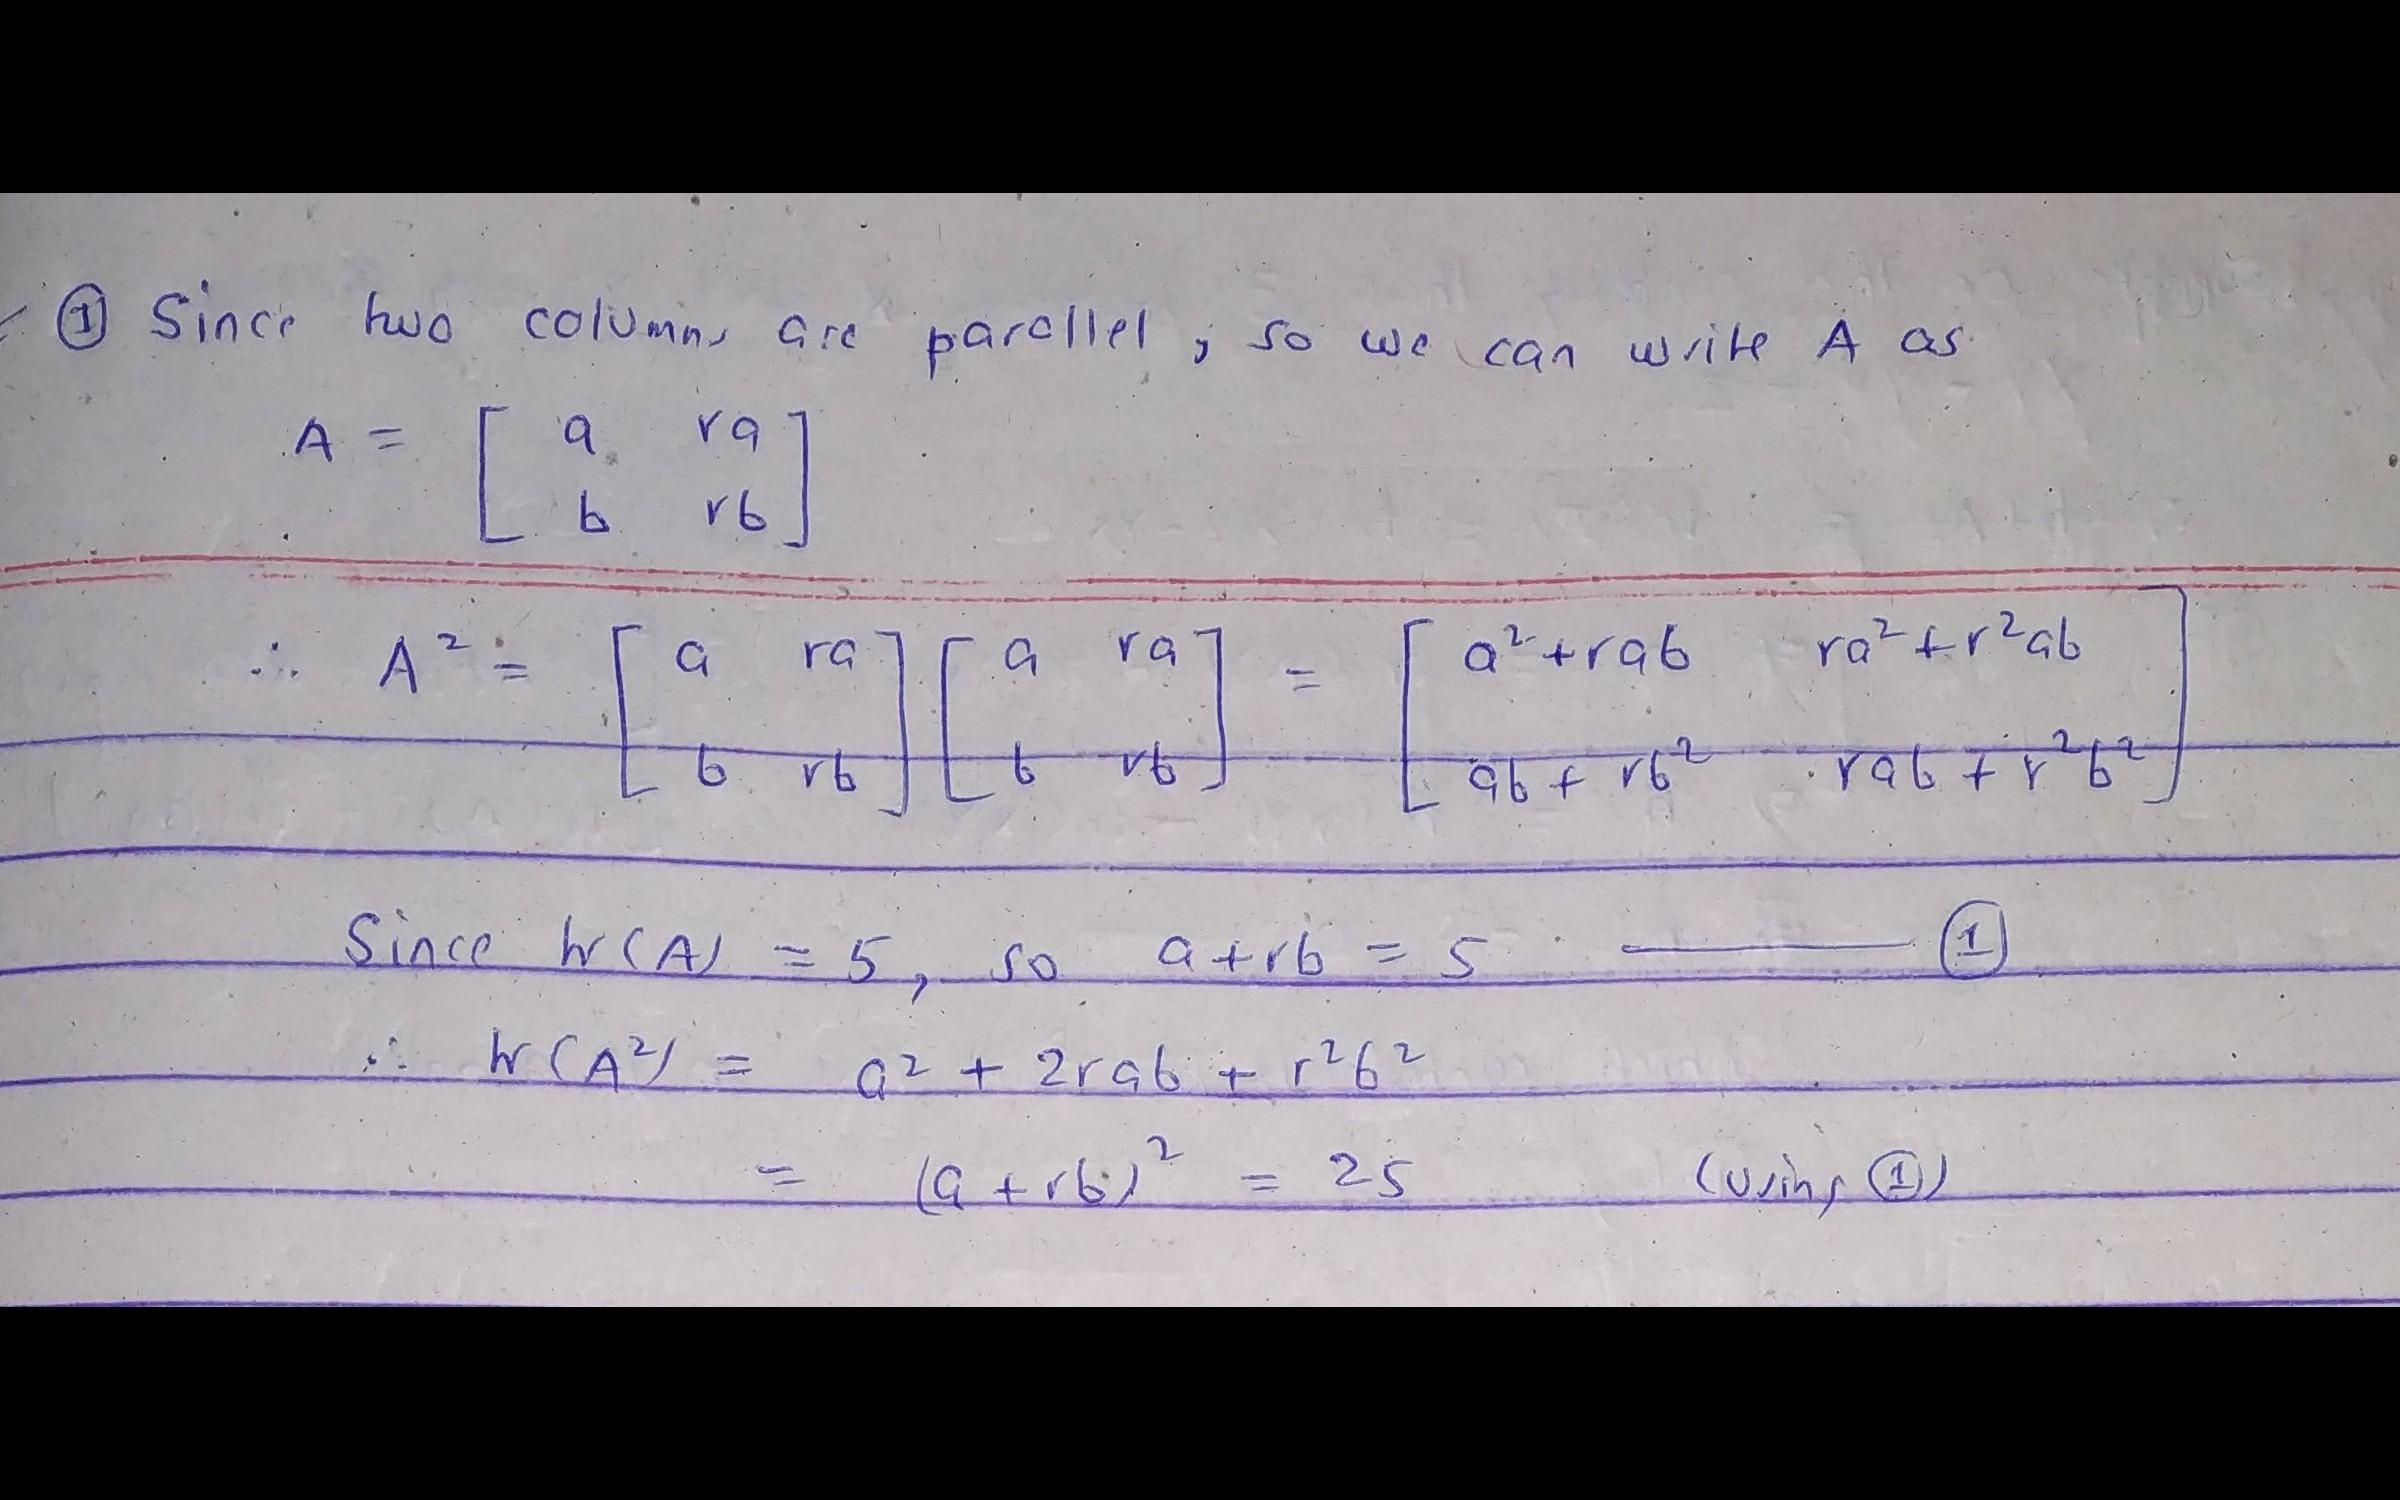 ① Since two columns are parallel, so we can write A as
A = [ a ra
b rb ]
∴ A² = [ a ra ] [ a ra ] = [ a²+rab ra²+r²ab ]
[ b rb ] [ b rb ] [ ab + rb² rab + r²b² ]
Since tr(A) = 5, so a+rb = 5 —— ①
∴ tr(A²) = a² + 2rab + r²b²
= (a + rb)² = 25 (using ①)